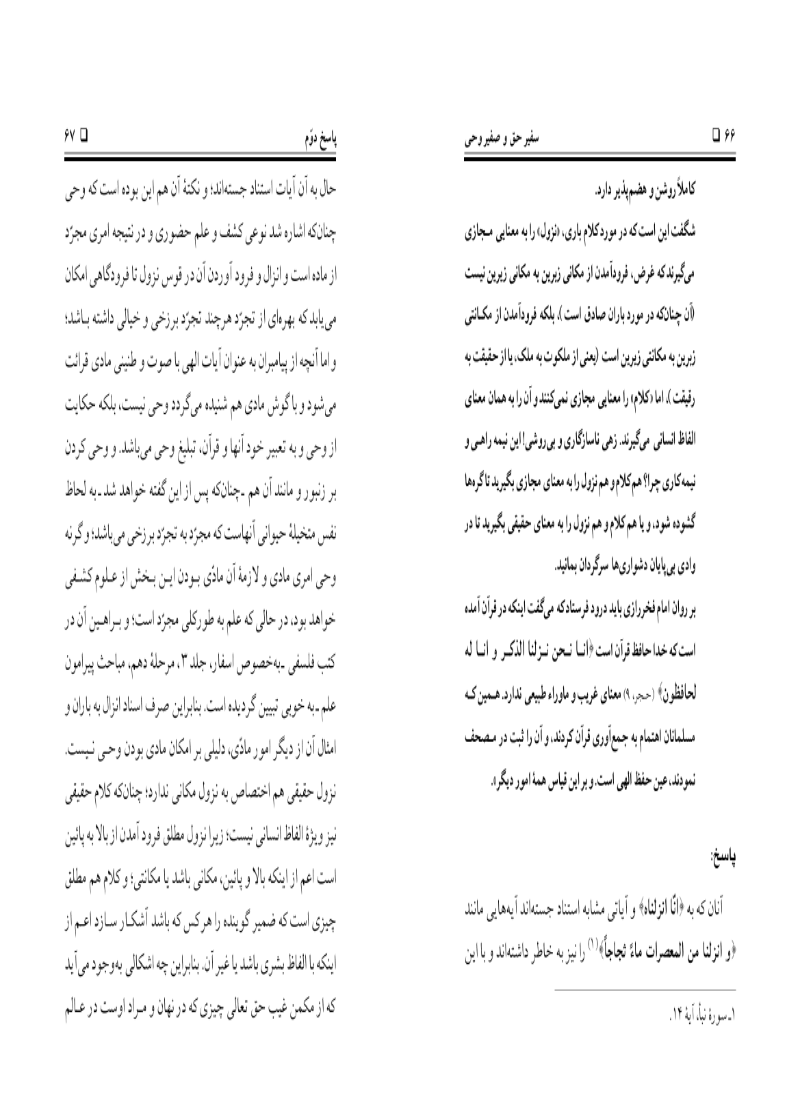 ۶۶ □ سفیر حق و صفیر وحی
کاملاً روشن و هضم‌پذیر دارد.
شگفت این است که در مورد کلام باری، «نزول» را به معنایی مجازی
می‌گیرند که غرض، فرودآمدن از مکانی زبرین به مکانی زیرین نیست
(آن چنان‌که در مورد باران صادق است)، بلکه فرودآمدن از مکانتی
زبرین به مکانتی زیرین است (یعنی از ملکوت به ملک، یا از حقیقت به
رقیقت)، اما «کلام» را معنایی مجازی نمی‌کنند و آن را به همان معنای
الفاظ انسانی می‌گیرند. زهی ناسازگاری و بی‌روشی! این نیمه راهی و
نیمه‌کاری چرا؟ هم کلام و هم نزول را به معنای مجازی بگیرید تا گره‌ها
گشوده شود، و یا هم کلام و هم نزول را به معنای حقیقی بگیرید تا در
وادی بی‌پایان دشواری‌ها سرگردان بمانید.
بر روان امام فخررازی باید درود فرستاد که می‌گفت اینکه در قرآن آمده
است که خدا حافظ قرآن است ﴿انـا نـحن نـزلنا الذکـر و انـا له
لحافظون﴾ (حجر، ۹) معنای غریب و ماوراء طبیعی ندارد. همین‌که
مسلمانان اهتمام به جمع‌آوری قرآن کردند، و آن را ثبت در مصحف
نمودند، عین حفظ الهی است. و بر این قیاس همهٔ امور دیگر».
پاسخ:
آنان که به ﴿انّا انزلناه﴾ و آیاتی مشابه استناد جسته‌اند آیه‌هایی مانند
﴿و انزلنا من المعصرات ماءً ثجاجاً﴾(۱) را نیز به خاطر داشته‌اند و با این
۱ـ سورهٔ نبأ، آیهٔ ۱۴.
پاسخ دوّم □ ۶۷
حال به آن آیات استناد جسته‌اند؛ و نکتهٔ آن هم این بوده است که وحی
چنان‌که اشاره شد نوعی کشف و علم حضوری و در نتیجه امری مجرّد
از ماده است و انزال و فرود آوردن آن در قوس نزول تا فرودگاهی امکان
می‌یابد که بهره‌ای از تجرّد هرچند تجرّد برزخی و خیالی داشته باشد؛
و اما آنچه از پیامبران به عنوان آیات الهی با صوت و طنینی مادی قرائت
می‌شود و با گوش مادی هم شنیده می‌گردد وحی نیست، بلکه حکایت
از وحی و به تعبیر خود آنها و قرآن، تبلیغ وحی می‌باشد. و وحی کردن
بر زنبور و مانند آن هم ـ چنان‌که پس از این گفته خواهد شد ـ به لحاظ
نفس متخیلهٔ حیوانی آنهاست که مجرّد به تجرّد برزخی می‌باشد؛ و گرنه
وحی امری مادی و لازمهٔ آن مادّی بـودن ایـن بـخش از عـلوم کشـفی
خواهد بود، در حالی که علم به طورکلی مجرّد است؛ و بـراهـین آن در
کتب فلسفی ـ به‌خصوص اسفار، جلد ۳، مرحلهٔ دهم، مباحث پیرامون
علم ـ به خوبی تبیین گردیده است. بنابراین صرف اسناد انزال به باران و
امثال آن از دیگر امور مادّی، دلیلی بر امکان مادی بودن وحـی نـیست.
نزول حقیقی هم اختصاص به نزول مکانی ندارد؛ چنان‌که کلام حقیقی
نیز ویژهٔ الفاظ انسانی نیست؛ زیرا نزول مطلق فرود آمدن از بالا به پائین
است اعم از اینکه بالا و پائین، مکانی باشد یا مکانتی؛ و کلام هم مطلق
چیزی است که ضمیر گوینده را هر کس که باشد آشکـار سـازد اعـم از
اینکه با الفاظ بشری باشد یا غیر آن. بنابراین چه اشکالی به‌وجود می‌آید
که از مکمن غیب حق تعالی چیزی که در نهان و مـراد اوست در عـالم